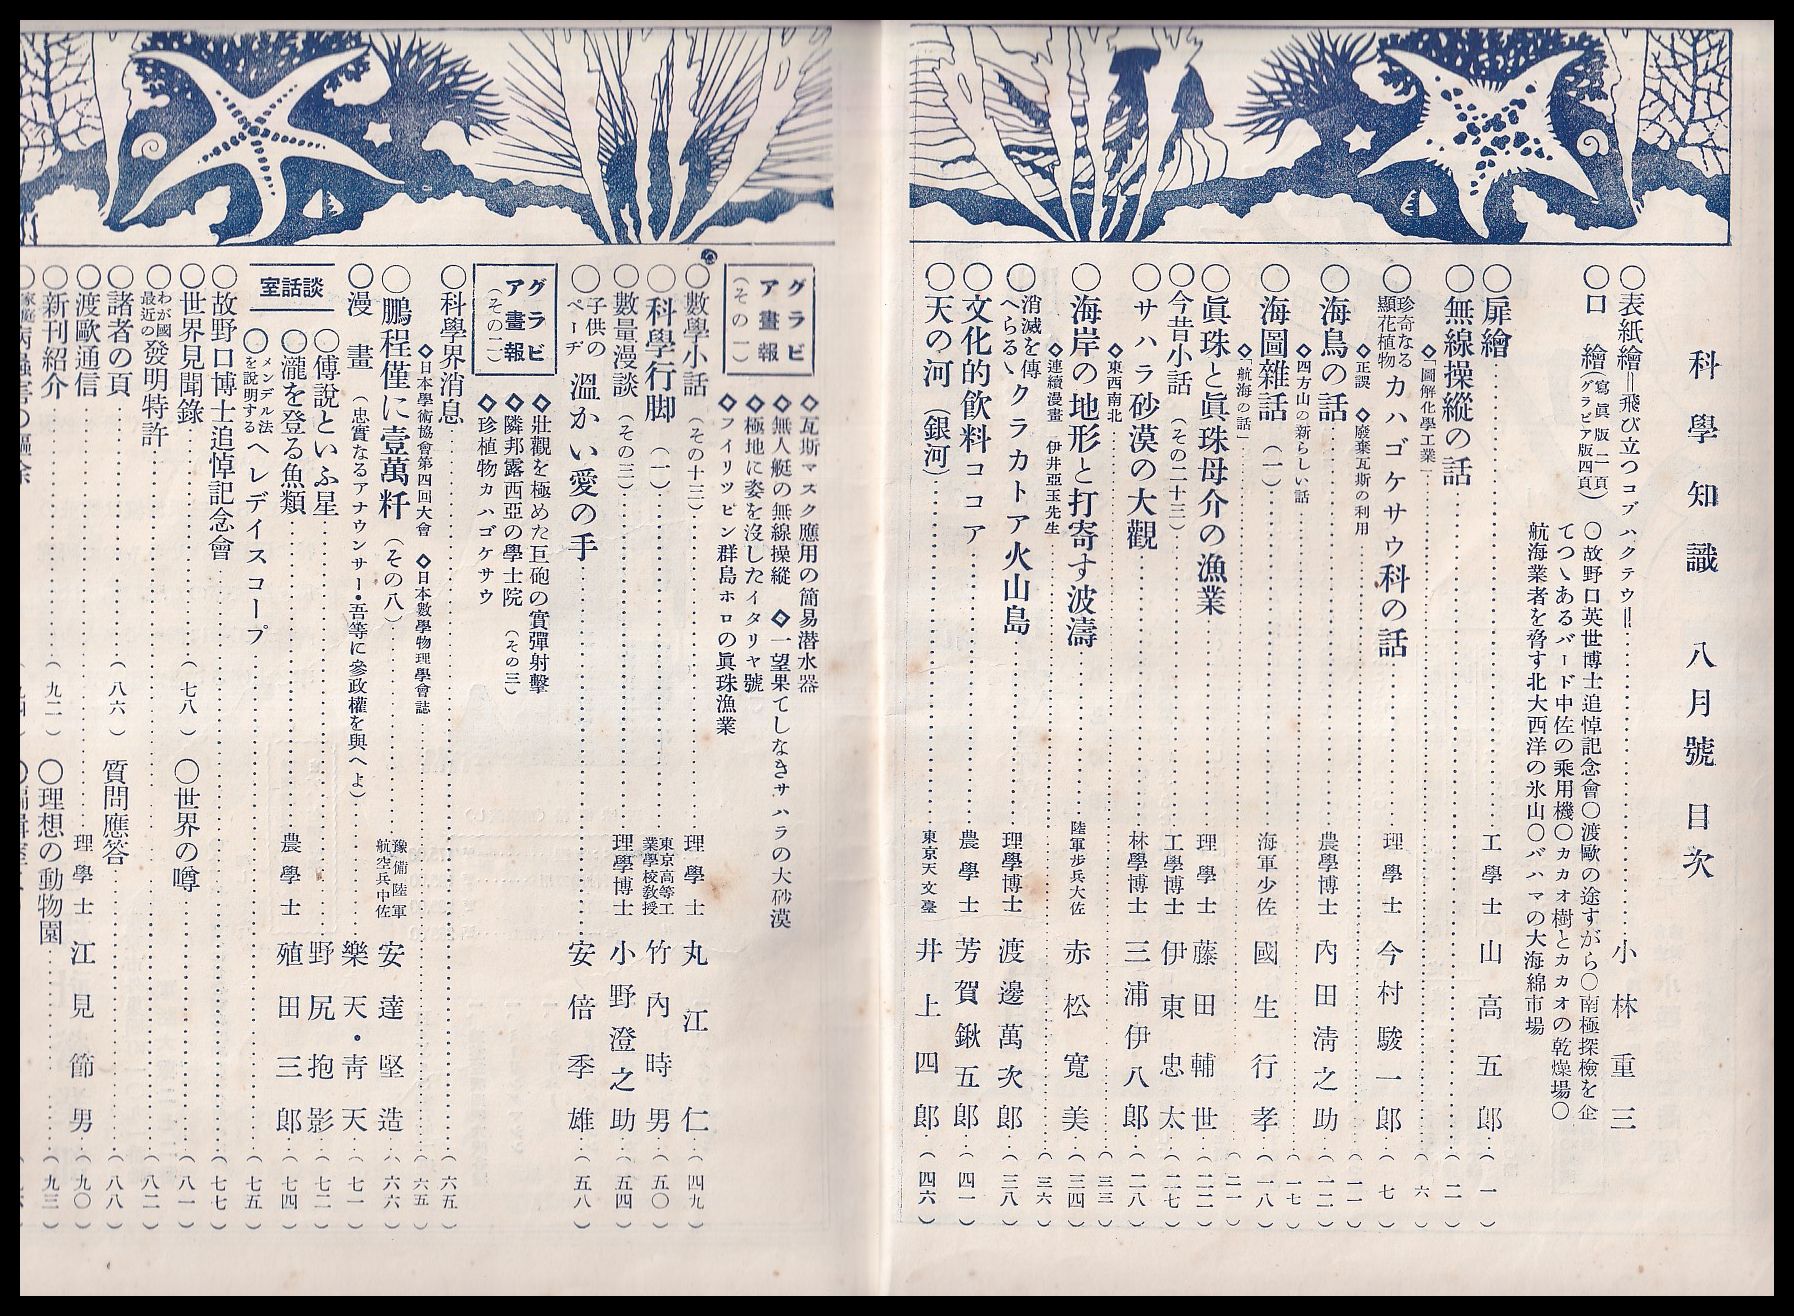 科學知識 八月號目次
〇表紙繪=飛び立つコブハクテウ=……小林重三
〇口繪(寫眞版二頁 グラビア版四頁)
〇故野口英世博士追悼記念會〇渡歐の途すがら〇南極探檢を企
てつゝあるバード中佐の乘用機〇カカオ樹とカカオの乾燥場〇
航海業者を脅す北大西洋の氷山〇バハマの大海綿市場
〇扉繪……工學士 山高五郎…(一)
〇無線操縱の話……(二)
◇「圖解化學工業」……(六)
〇珍奇なる顯花植物カハゴケサウ科の話……理學士 今村駿一郎…(七)
◇正誤 ◇廢棄瓦斯の利用……(一一)
〇海鳥の話……農學博士 內田淸之助…(一二)
◇四方山の新らしい話……(一七)
〇海圖雜話(一)……海軍少佐 國生行孝…(一八)
◇「航海の話」……(二一)
〇眞珠と眞珠母介の漁業……理學士 藤田輔世…(二二)
〇今昔小話(その二十三)……工學博士 伊東忠太…(二七)
〇サハラ砂漠の大觀……林學博士 三浦伊八郎…(二八)
◇東西南北……(三三)
〇海岸の地形と打寄す波濤……陸軍步兵大佐 赤松寬美…(三四)
◇連續漫畫 伊井亞玉先生……(三六)
〇消滅を傳へらるゝクラカトア火山島……理學博士 渡邊萬次郎…(三八)
〇文化的飮料ココア……農學士 芳賀鍬五郎…(四一)
〇天の河(銀河)……東京天文臺 井上四郎…(四六)
グラビア畫報(その一)
◇瓦斯マスク應用の簡易潜水器
◇無人艇の無線操縱 ◇一望果てしなきサハラの大砂漠
◇極地に姿を沒したイタリヤ號
◇フイリツピン群島ホロの眞珠漁業
〇數學小話(その十三)……理學士 丸江仁…(四九)
〇科學行脚(一)……東京高等工業學校敎授 竹內時男…(五〇)
〇數量漫談(その三)……理學博士 小野澄之助…(五四)
〇子供のページ 溫かい愛の手……安倍季雄…(五八)
グラビア畫報(その二)
◇壯觀を極めた巨砲の實彈射擊
◇隣邦露西亞の學士院(その三)
◇珍植物カハゴケサウ
〇科學界消息……(六五)
◇日本學術協會第四回大會 ◇日本數學物理學會誌……(六五)
〇鵬程僅に壹萬粁(その八)……豫備陸軍航空兵中佐 安達堅造…(六六)
〇漫畫(忠實なるアナウンサー・吾等に參政權を與へよ)……樂天・靑天…(七一)
談話室
〇傅說といふ星……野尻抱影…(七二)
〇瀧を登る魚類……農學士 殖田三郎…(七四)
〇メンデル法を說明するヘレデイスコープ……(七五)
〇故野口博士追悼記念會……(七七)
〇世界見聞錄……(七八)
〇世界の噂……(八一)
〇わが國最近の發明特許……(八二)
〇諸者の頁……(八六)
質問應答……(八八)
〇渡歐通信……理學士 江見節男…(九〇)
〇新刊紹介……(九二)
〇理想の動物園……(九三)